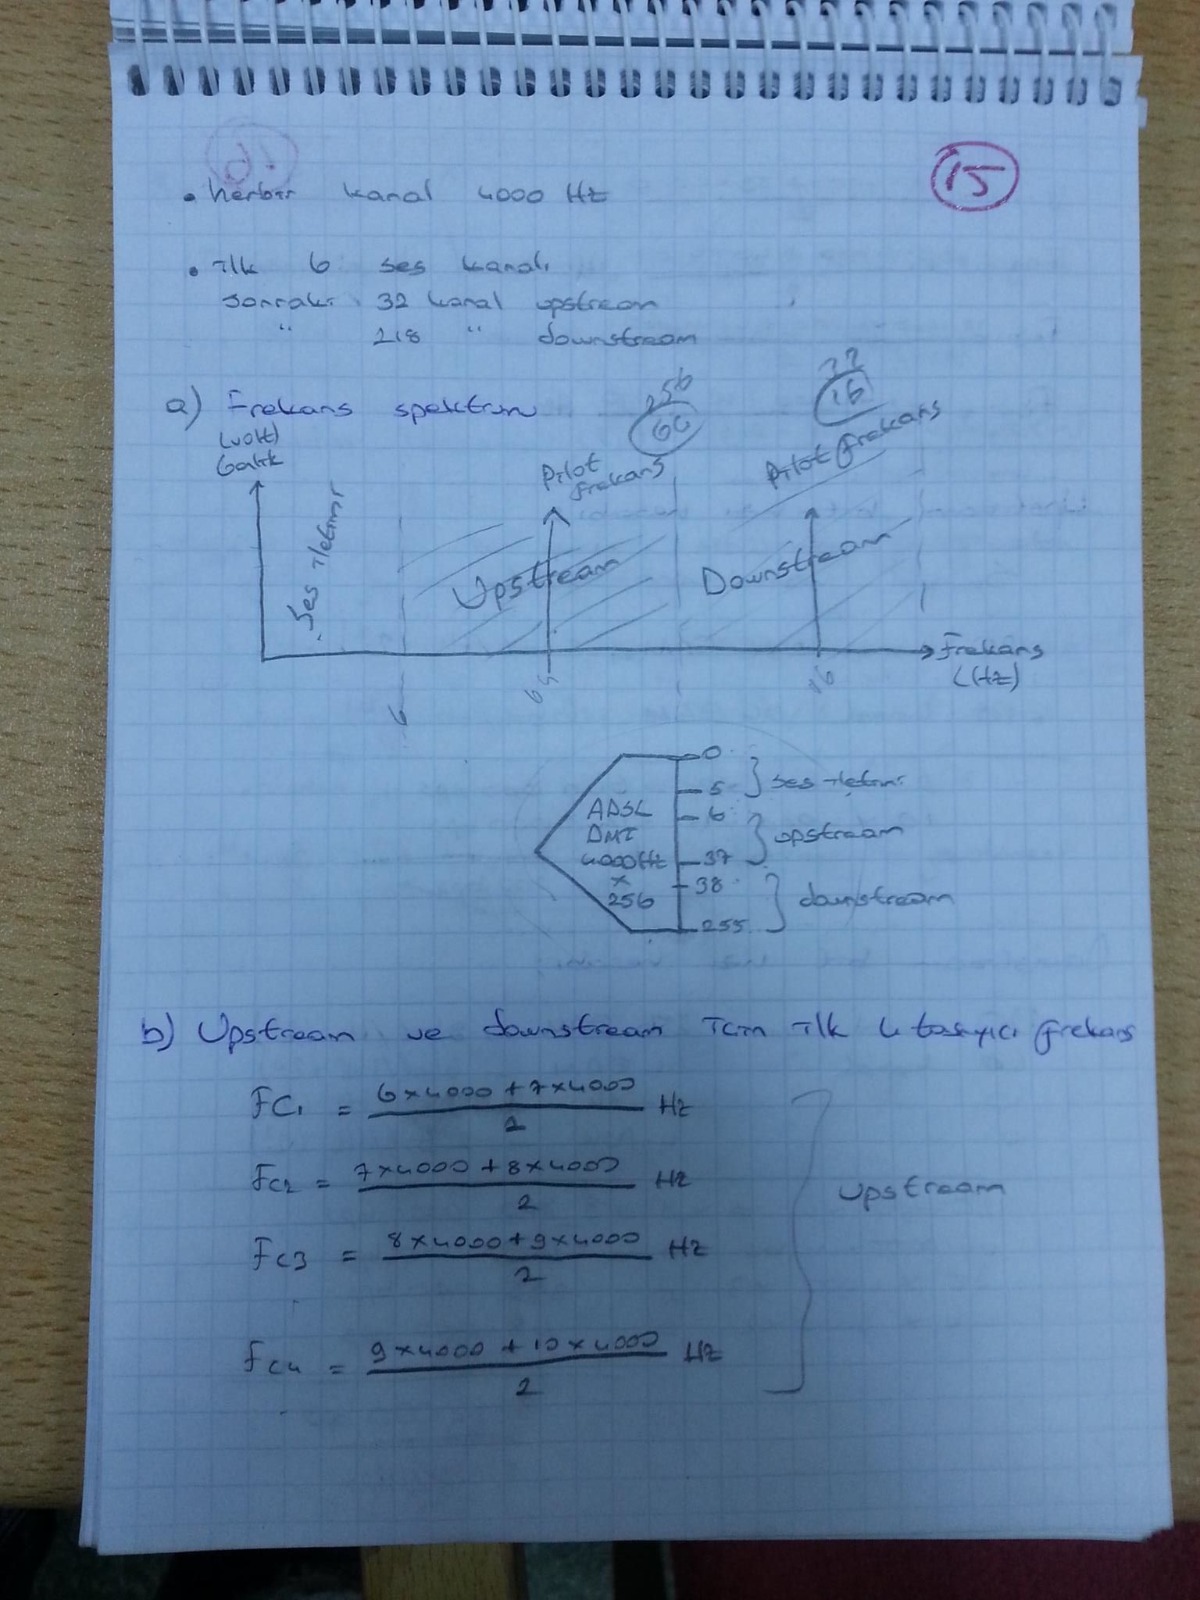 15
• herbir kanal 4000 Hz
• ilk 6 ses kanalı
sonraki 32 kanal upstream
" 218 " downstream
a) Frekans spektrum
(volt)
Genlik
256
64
32
16
Pilot frekans
Pilot frekans
Ses iletimi
Upstream
Downstream
Frekans
(Hz)
6
64
16
ADSL
DMT
4000Hz
x
256
0
5
6
37
38
255
ses iletimi
upstream
downstream
b) Upstream ve downstream için ilk 4 taşıyıcı frekans
Fc1 = 6x4000 + 7x4000 / 2 Hz
Fc2 = 7x4000 + 8x4000 / 2 Hz
Fc3 = 8x4000 + 9x4000 / 2 Hz
Fc4 = 9x4000 + 10x4000 / 2 Hz
upstream